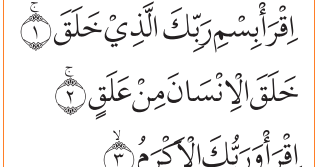 اِقْرَأْ بِسْمِ رَبِّكَ الَّذِيْ خَلَقَ ۚ ﴿١﴾
خَلَقَ الْاِنْسَانَ مِنْ عَلَقٍ ۚ ﴿٢﴾
اِقْرَأْ وَرَبُّكَ الْاَكْرَمُ ۙ ﴿٣﴾